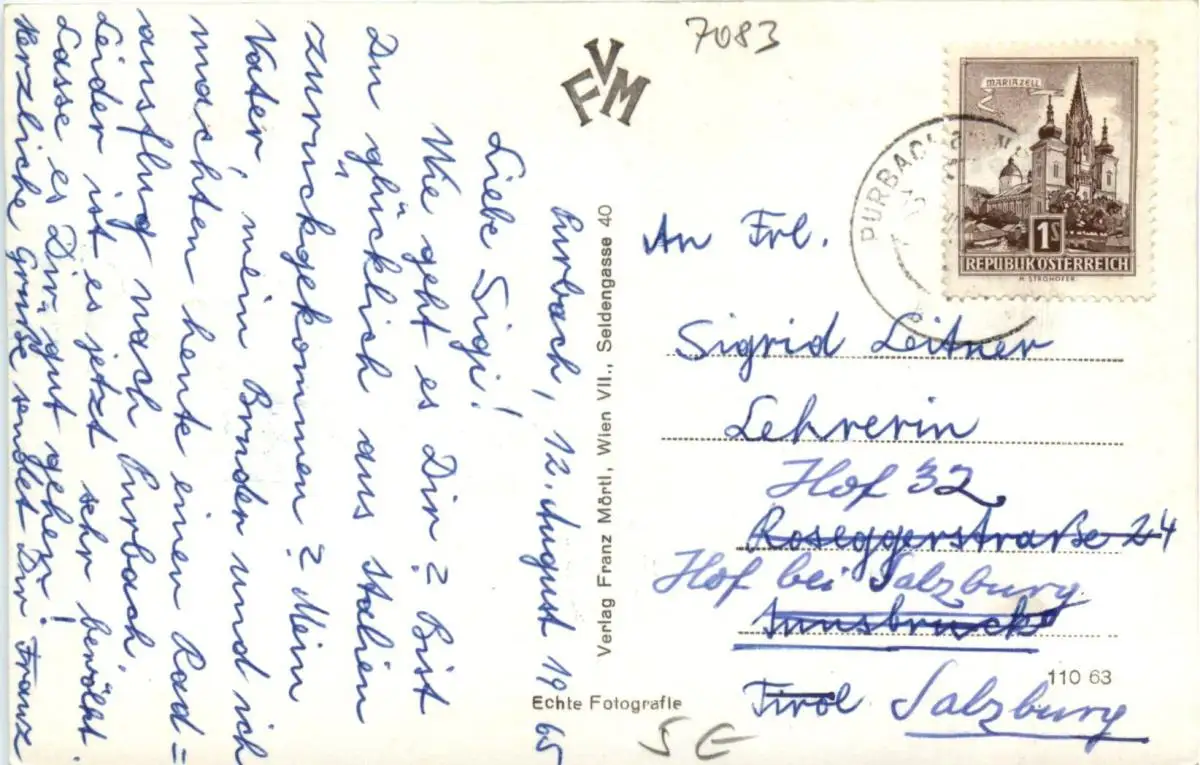 7083
FVM
Purbach, 12. August 1965
Liebe Sigi!
Wie geht es Dir? Bist
Du glücklich aus Italien
zurückgekommen? Mein
Vater, mein Bruder und ich
machten heute einen Rad=
ausflug nach Purbach.
Leider ist es jetzt sehr bewölkt.
Lasse es Dir gut gehen!
Herzliche Grüße sendet Dir Franz
Verlag Franz Mörtl, Wien VII., Seidengasse 40
Echte Fotografie
MARIAZELL
1S
REPUBLIK ÖSTERREICH
H. STROHOFER
PURBACH
An Frl.
Sigrid Leitner
Lehrerin
Hof 32
Roseggerstraße 24
Hof bei Salzburg
Innsbruck
Tirol Salzburg
110 63
SE